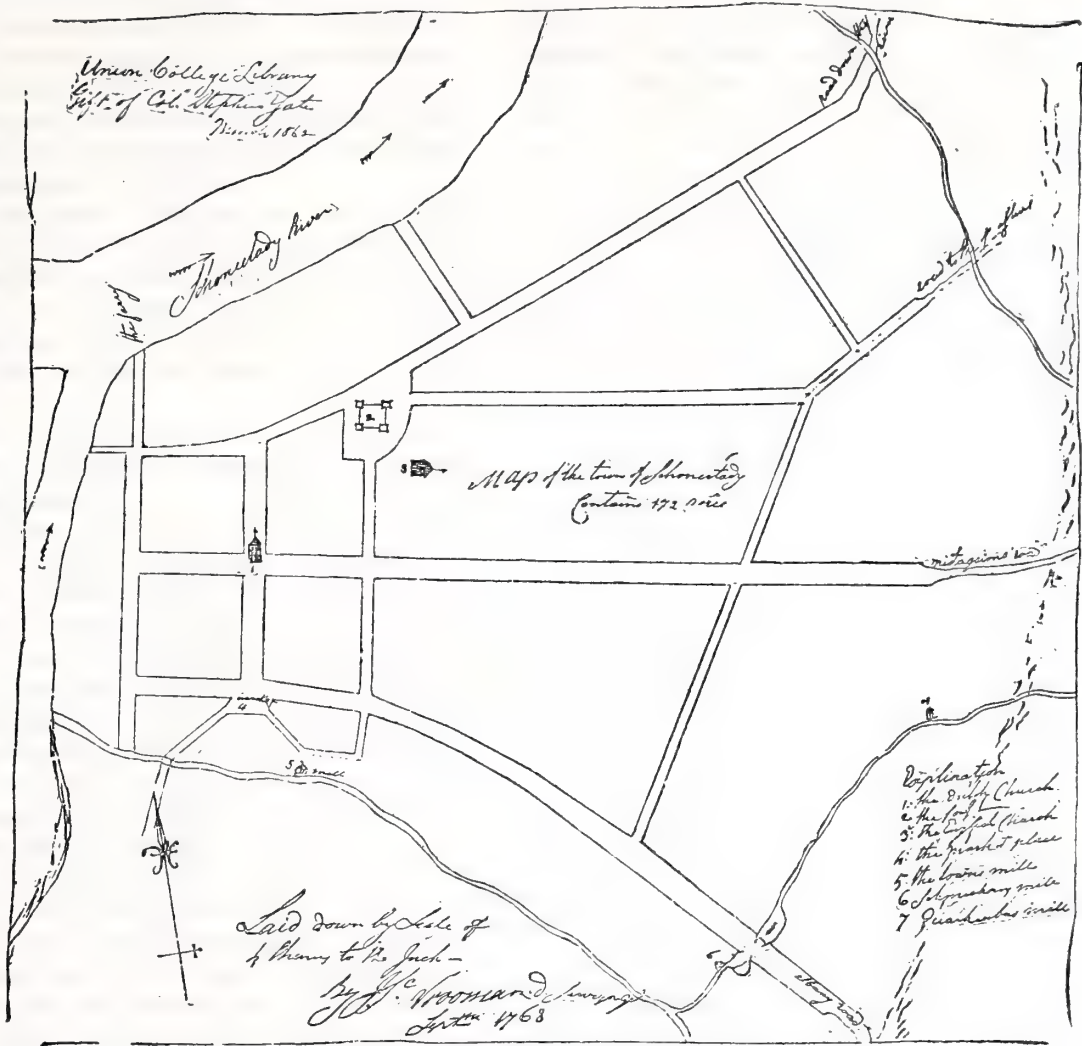 Union College Library
Gift of Col. Stephen Yates
March 1862
road down
Schonectady River
the ferry
road to the
2
3
Map of the town of Schonectady
Contains 172
road
4
5 mill
7
Explination
1. the Dutch Church
2 the fort
3. the English Church
4. the market place
5. the towns mill
6 mill
7 mill
6
Albany road
Laid down by Scale of
4 Chains to the Inch—
By Vrooman Surveyor
1768